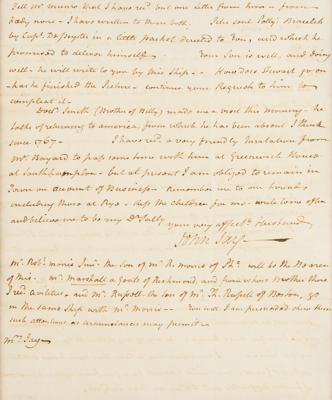 Tell Mr. Munro that I have recd. but one letter from him — from
Lady none — I have written to them both.
by Capt. in a little packet directed to You, and which he
promised to deliver himself — Your Son is well, and doing
well — he will write to you by this Ship — How does Stewart go on
— has he finished the Picture — continue your Request to him to
compleat it —
Doctr. Smith (Brother of Billy) made me a visit this morning — he
talks of returning to America, from which he has been absent I think
since 1767 — I have recd. a very friendly Invitation from
Mr. Bayard to pass some time with him at Greenwich House
at Southhampton — but at present I am obliged to remain in
Town on account of Business — Remember me to our friends
including those at Rye — Kiss the Children for me — write to me often
and believe me to be my Dr. Sally
your very affecte. Husband
John Jay —
Mr. Robt. Morris Junr. the son of Mr. R. Morris of Pha. will be the Bearer
of this — Mr. Marshall a Gentn. of Richmond, and from whose Brother there
I recd. civilities, and Mr. Russell the son of Mr. Th. Russell of Boston, go
in the same Ship with Mr. Morris — You will I am persuaded shew them
such attentions as circumstances may permit —
Mrs. Jay